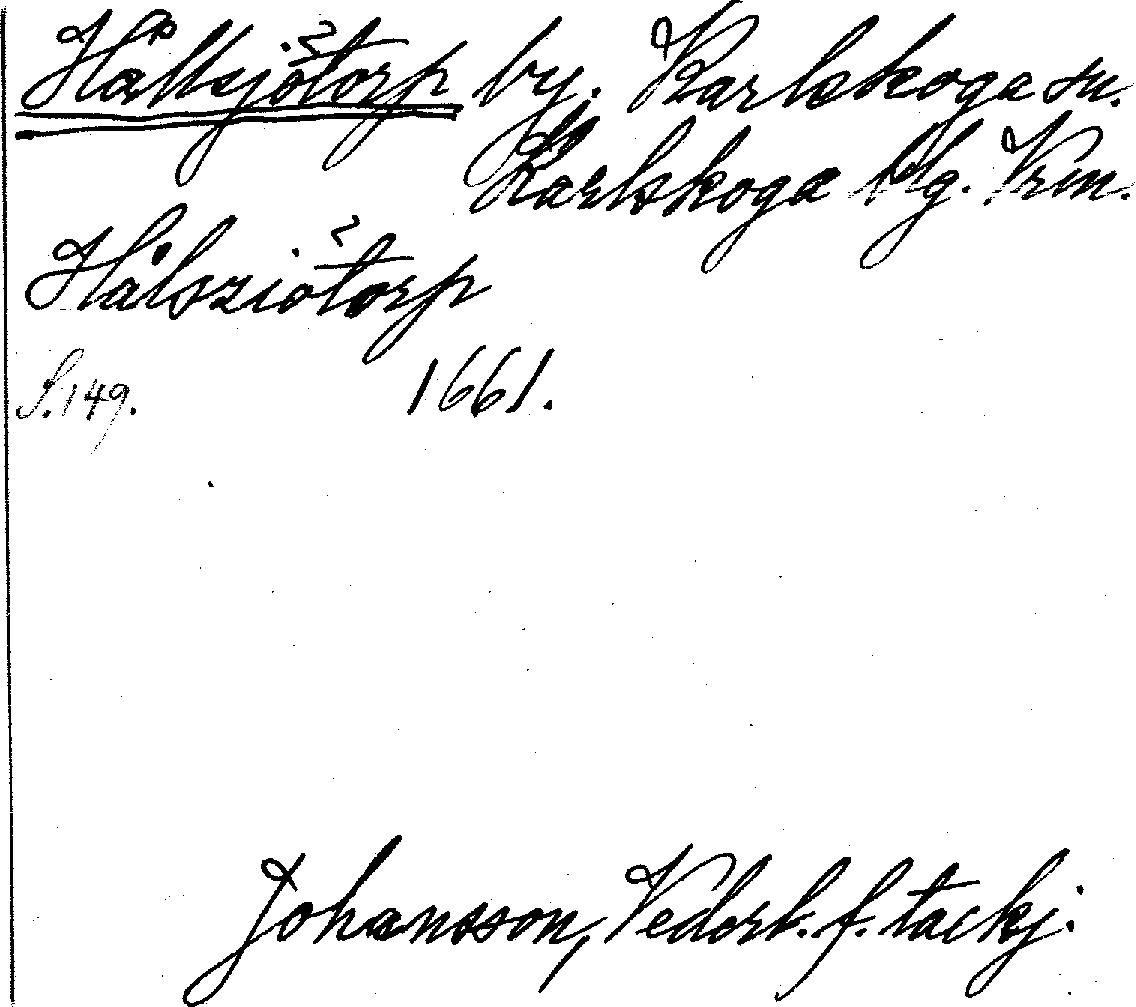 Hållsjötorp by. Karlskoga sn.
Karlskoga blg. Vrm.
Hålsziötorp
S. 149. 1661.
Johansson, Vederk. f. tackj.